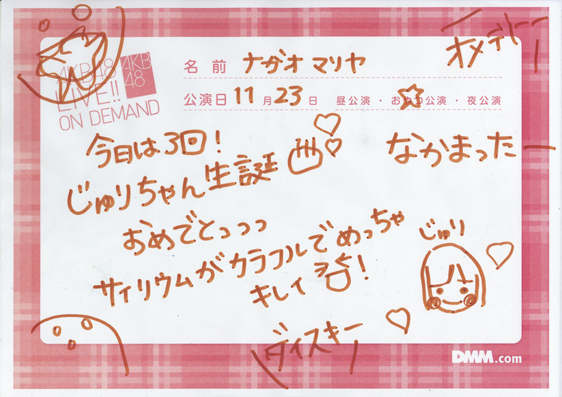 オメデトー
AKB48
LIVE!!
ON DEMAND
AKB
48
名前 ナガオ マリヤ
公演日 11月23日 昼公演・お☆公演・夜公演
今日は3回!
なかまったー
じゅりちゃん生誕
おめでとっっっ
サイリウムがカラフルでめっちゃ
キレイ!
じゅり
ダイスキー
DMM.com